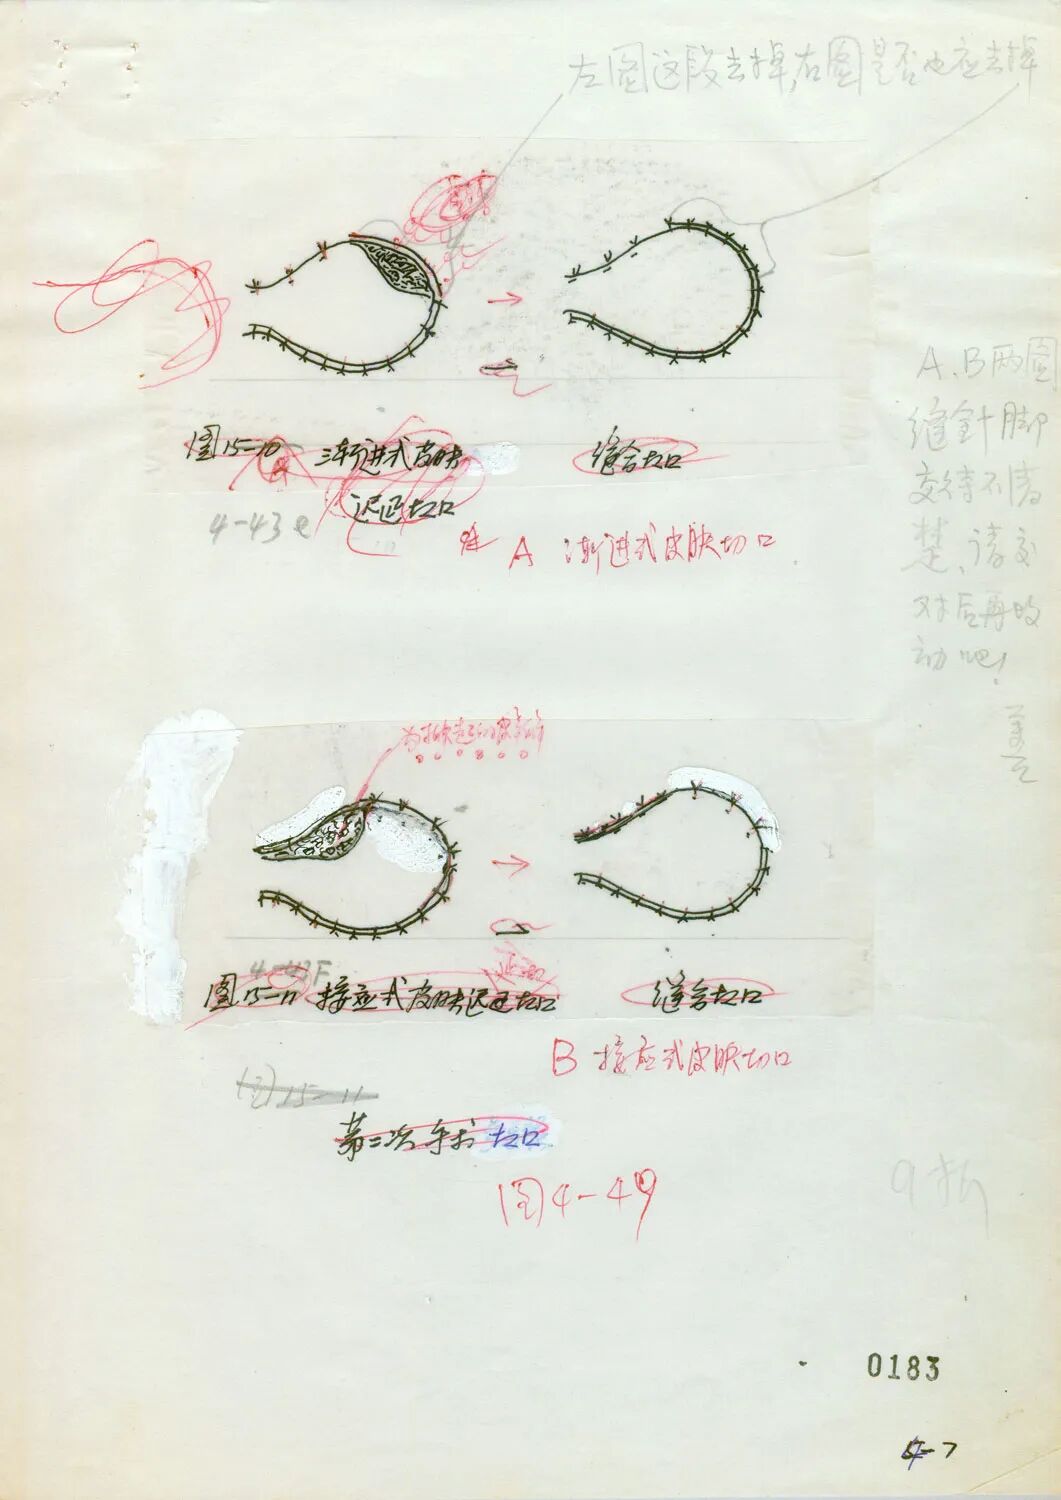 左图这段去掉,右图是否也应去掉
A、B两图
缝针脚
交待不清
楚、请交
对后再改
动吧!
图15-10 渐进式皮肤 缝合切口
迟延切口
4-43e
A 渐进式皮肤切口
为掀起的皮瓣
4-43F
图15-11 接应式皮肤迟延切口 缝合切口
B 接应式皮肤切口
(图)15-11
第二次手术切口
图4-49
0183
-7